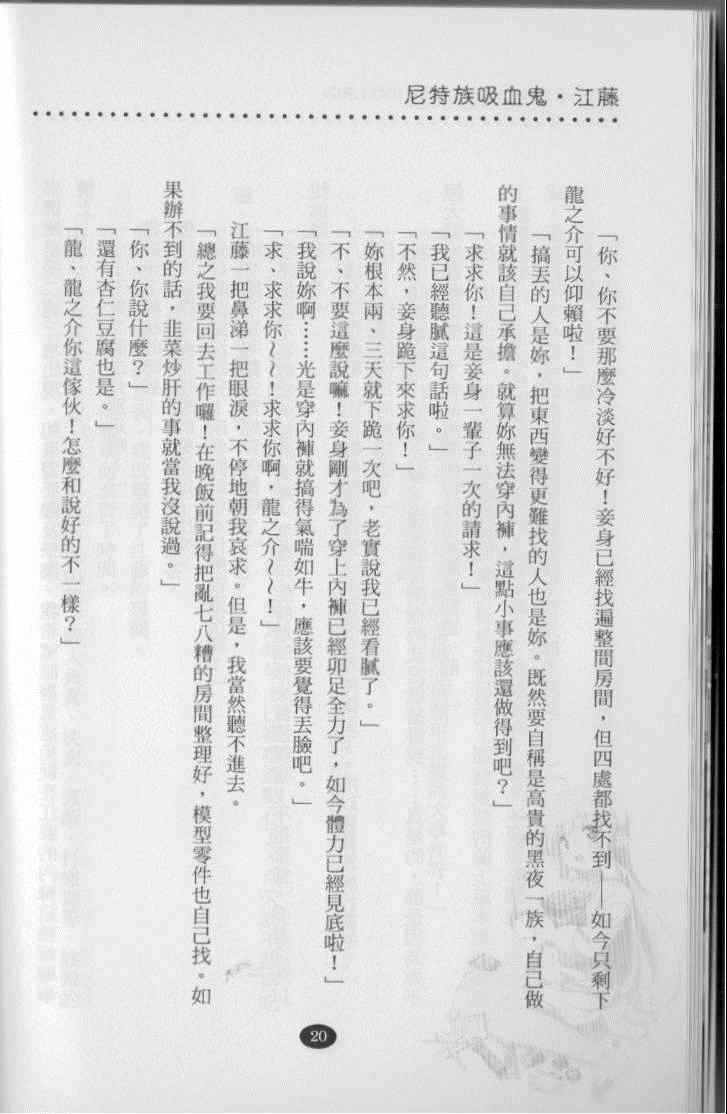 尼特族吸血鬼・江藤
「你、你不要那麼冷淡好不好！妾身已經找遍整間房間，但四處都找不到——如今只剩下
龍之介可以仰賴啦！」
「搞丟的人是妳，把東西變得更難找的人也是妳。既然要自稱是高貴的黑夜一族，自己做
的事情就該自己承擔。就算妳無法穿內褲，這點小事應該還做得到吧？」
「求求你！這是妾身一輩子一次的請求！」
「我已經聽膩這句話啦。」
「不然，妾身跪下來求你！」
「妳根本兩、三天就下跪一次吧，老實說我已經看膩了。」
「不、不要這麼說嘛！妾身剛才為了穿上內褲已經卯足全力了，如今體力已經見底啦！」
「我說妳啊……光是穿內褲就搞得氣喘如牛，應該要覺得丟臉吧。」
「求、求求你～～！求求你啊，龍之介～～！」
江藤一把鼻涕一把眼淚，不停地朝我哀求。但是，我當然聽不進去。
「總之我要回去工作囉！在晚飯前記得把亂七八糟的房間整理好，模型零件也自己找。如
果辦不到的話，韭菜炒肝的事就當我沒說過。」
「你、你說什麼？」
「還有杏仁豆腐也是。」
「龍、龍之介你這傢伙！怎麼和說好的不一樣？」
20